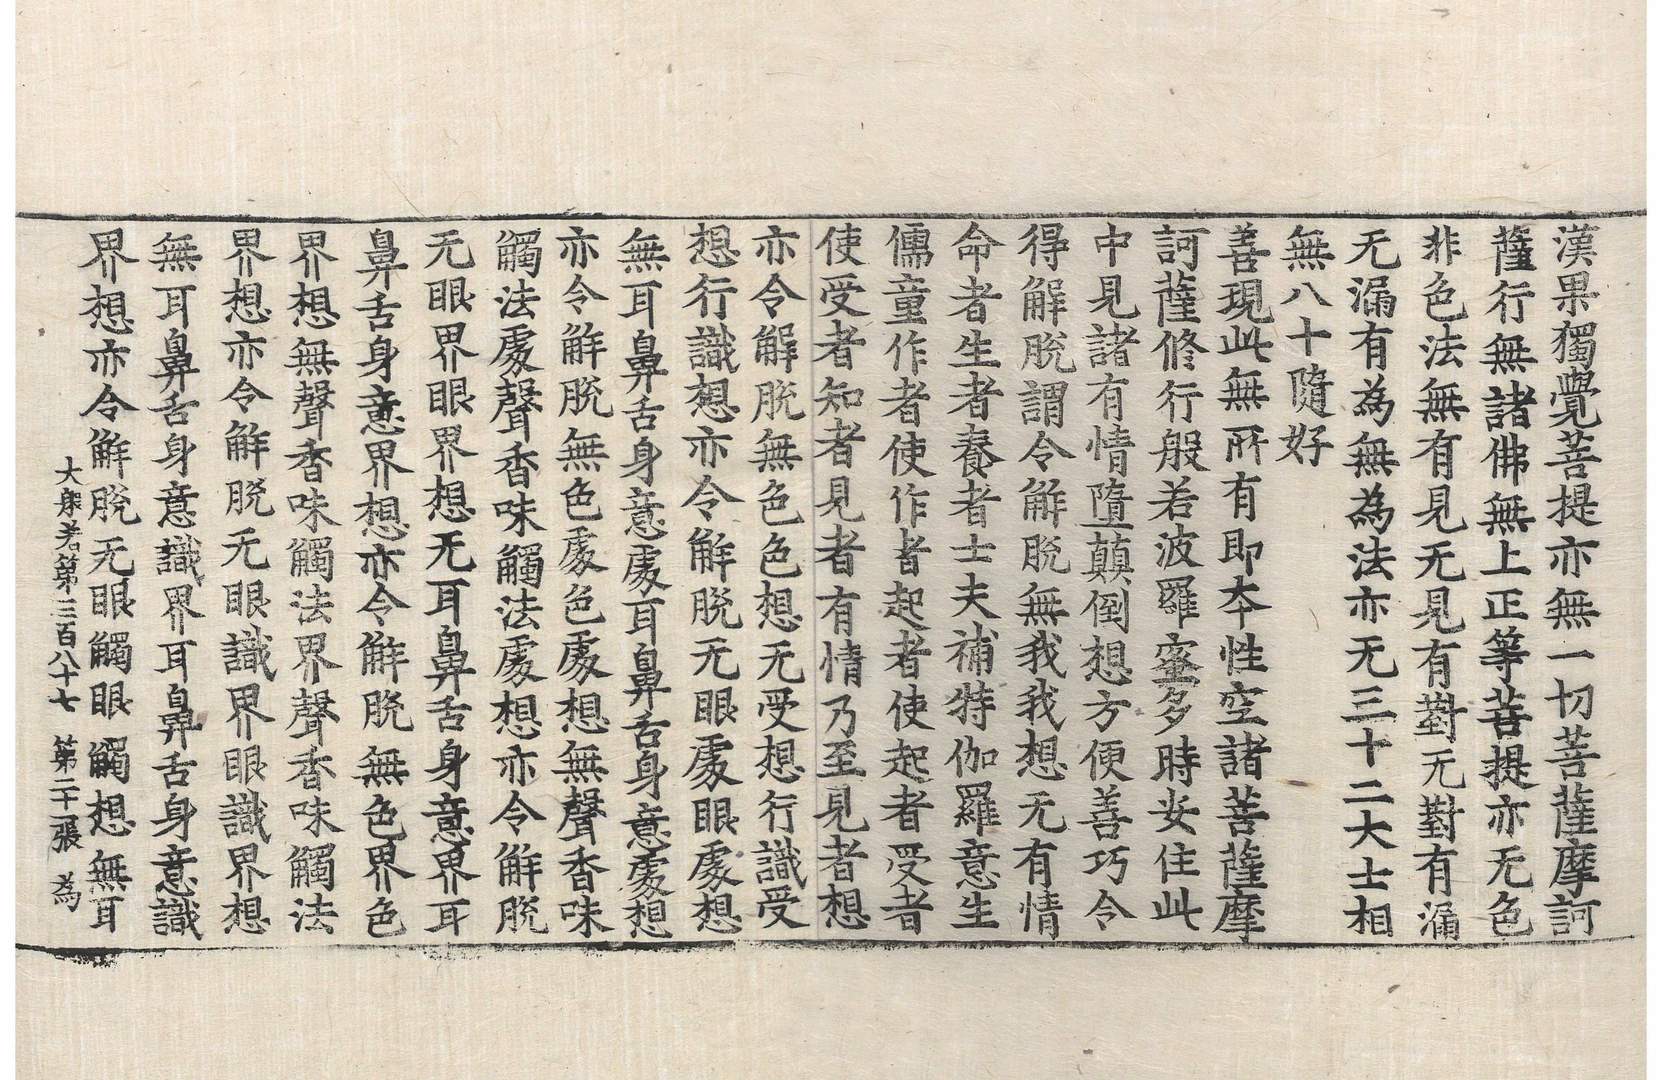 漢果獨覺菩提亦無一切菩薩摩訶
薩行無諸佛無上正等菩提亦无色
非色法無有見无見有對无對有漏
无漏有為無為法亦无三十二大士相
無八十隨好
善現此無所有即夲性空諸菩薩摩
訶薩修行般若波羅蜜多時安住此
中見諸有情墮顛倒想方便善巧令
得解脫謂令解脫無我我想无有情
命者生者養者士夫補特伽羅意生
儒童作者使作者起者使起者受者
使受者知者見者有情乃至見者想
亦令解脫無色色想无受想行識受
想行識想亦令解脫无眼處眼處想
無耳鼻舌身意處耳鼻舌身意處想
亦令解脫無色處色處想無聲香味
觸法處聲香味觸法處想亦令解脫
无眼界眼界想无耳鼻舌身意界耳
鼻舌身意界想亦令解脫無色界色
界想無聲香味觸法界聲香味觸法
界想亦令解脫无眼識界眼識界想
無耳鼻舌身意識界耳鼻舌身意識
界想亦令解脫无眼觸眼觸想無耳
大般若第三百八十七 第二十二張 為